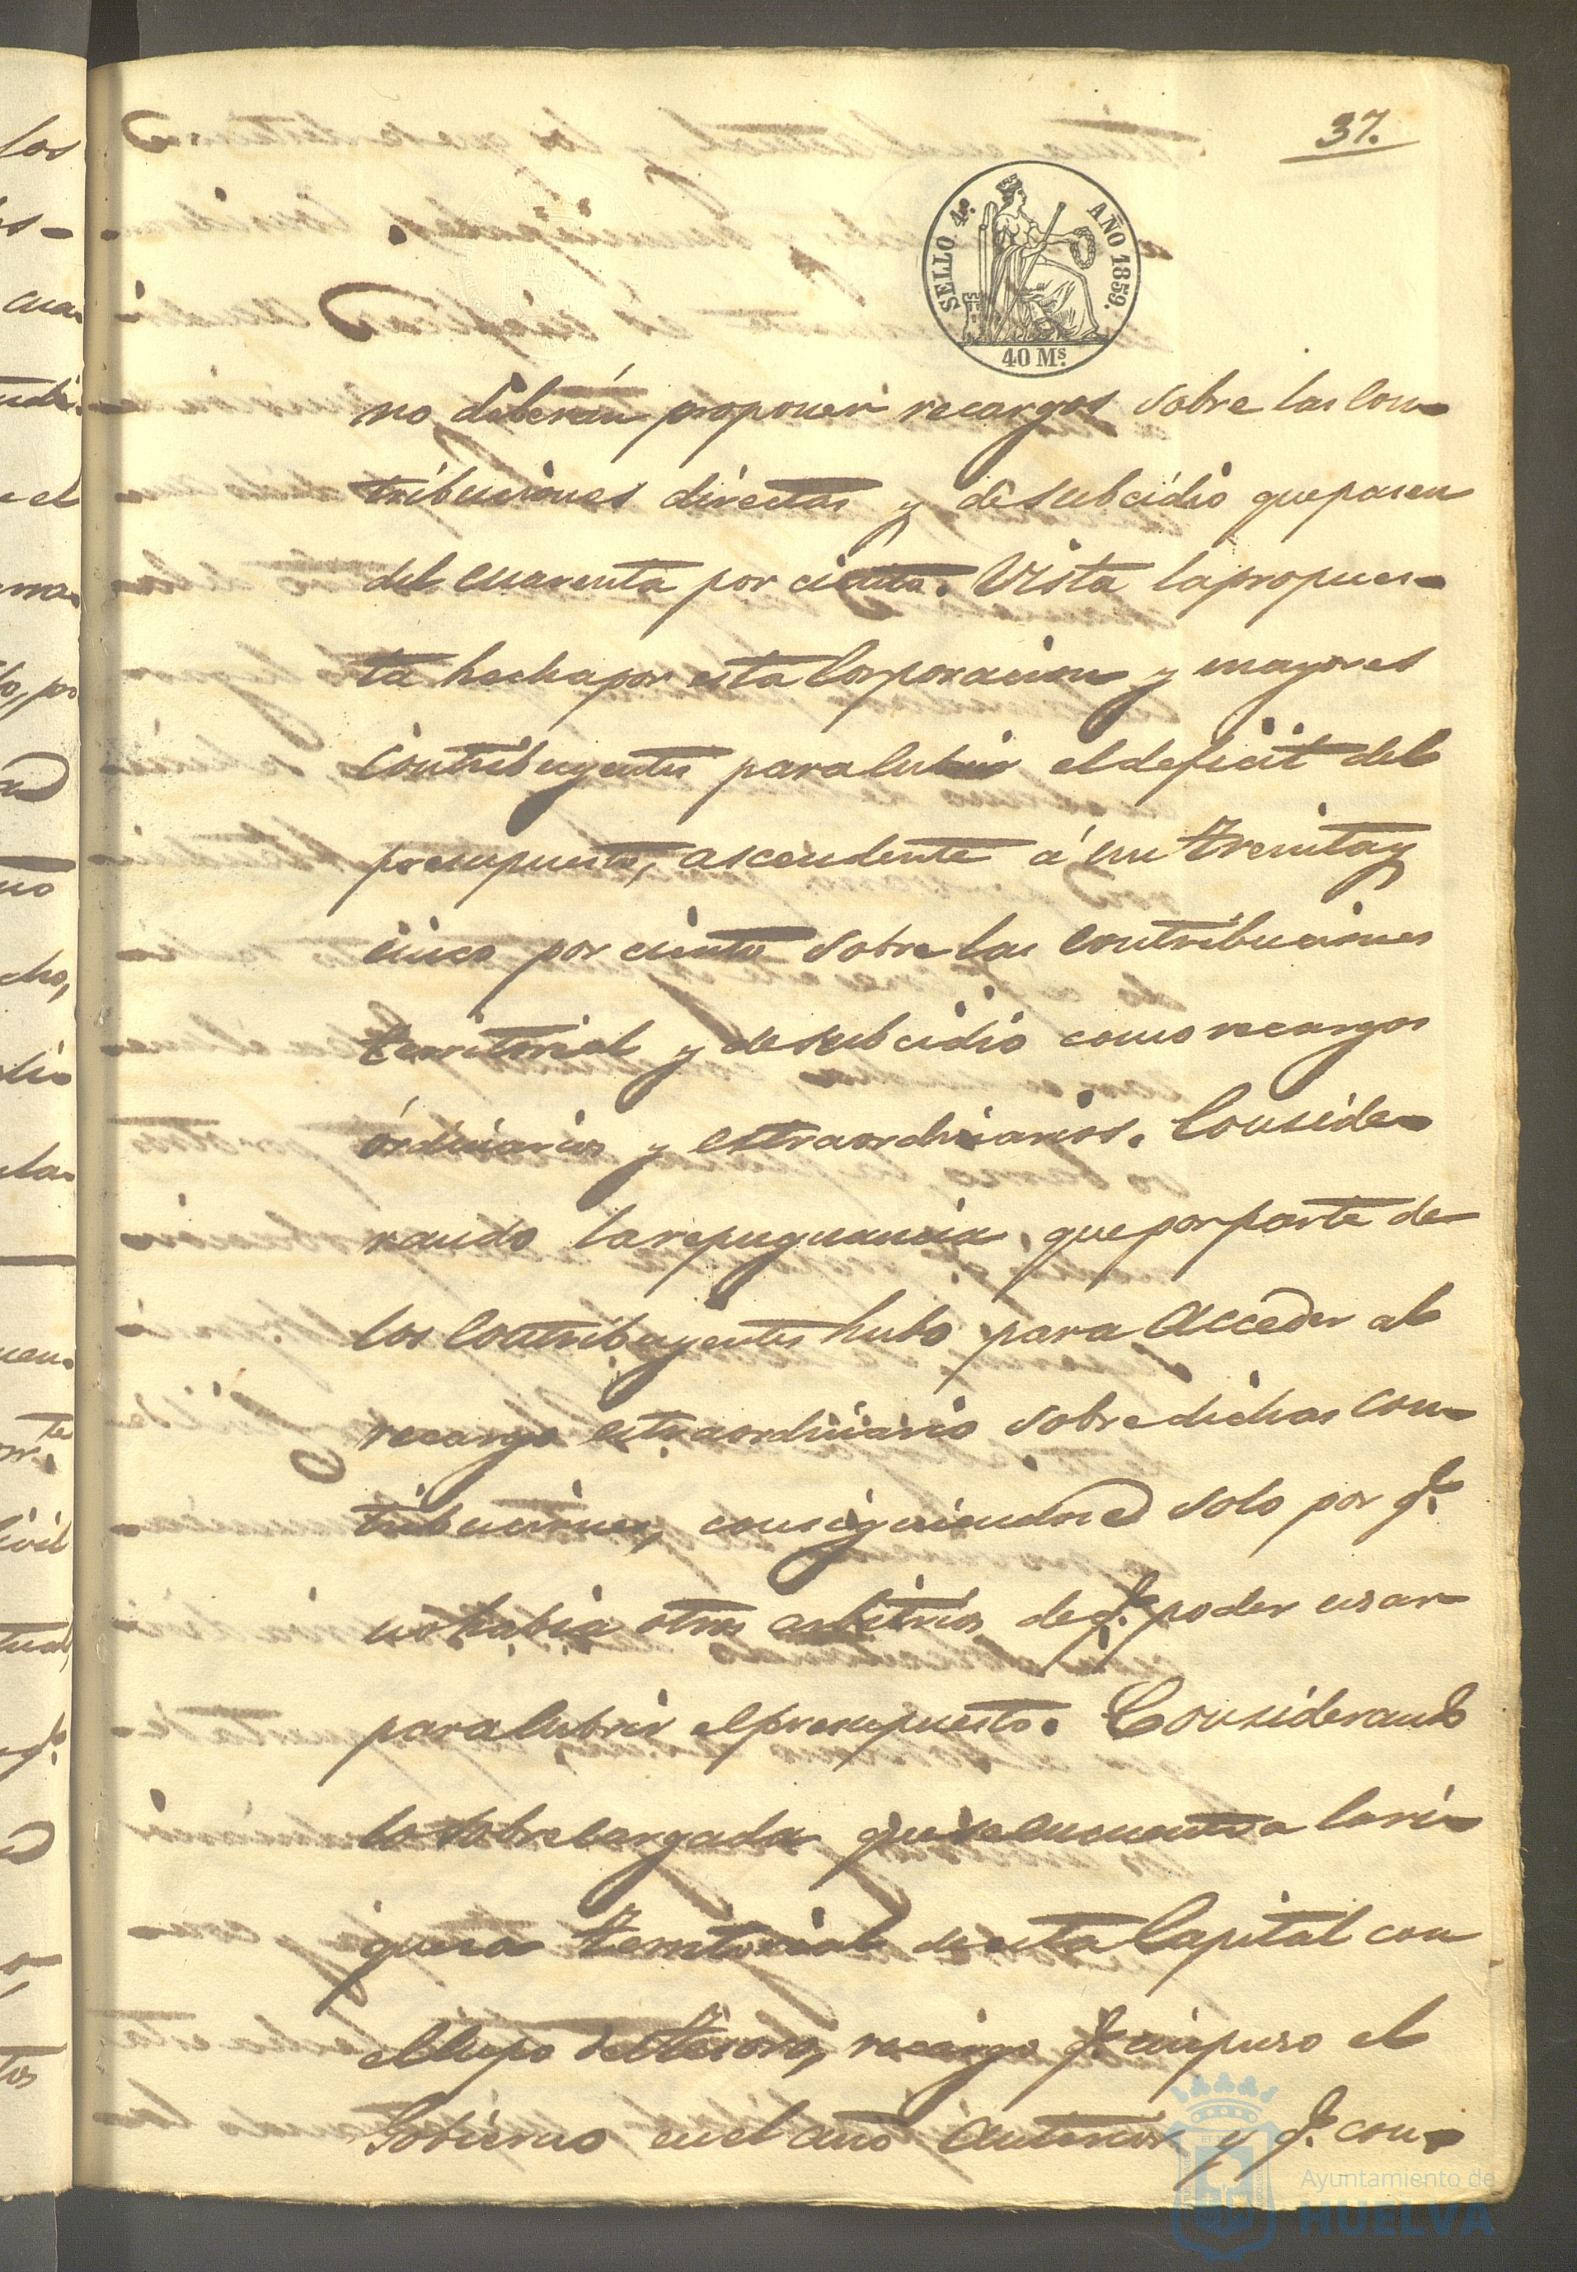 37.
SELLO 4º. AÑO 1859.
40 Mˢ.
no deberán proponer recargos sobre las Con-
tribuciones directas y de subcidio que pasen
del cuarenta por ciento. Vista la propues-
ta hecha por esta Corporacion y mayores
contribuyentes para cubrir el deficit del
presupuesto, ascendente á un treinta y
cinco por ciento sobre las Contribuciones
territorial y de subcidio como recargos
órdinarios y estraordinarios. Conside-
rando la repugnancia, que por parte de
los Contribuyentes hubo para acceder al
recargo estraordinario sobre dichas con-
tribuciones, solo por q.e
no habia otros arbitrios de q.e poder usar
para cubrir el presupuesto. Considerando
lo sobrecargada que se encuentra la ri-
queza territorial de esta Capital con
el cupo del tesoro, recargo q.e impuso el
Gobierno en el año anterior y q.e con-
Ayuntamiento de
HUELVA